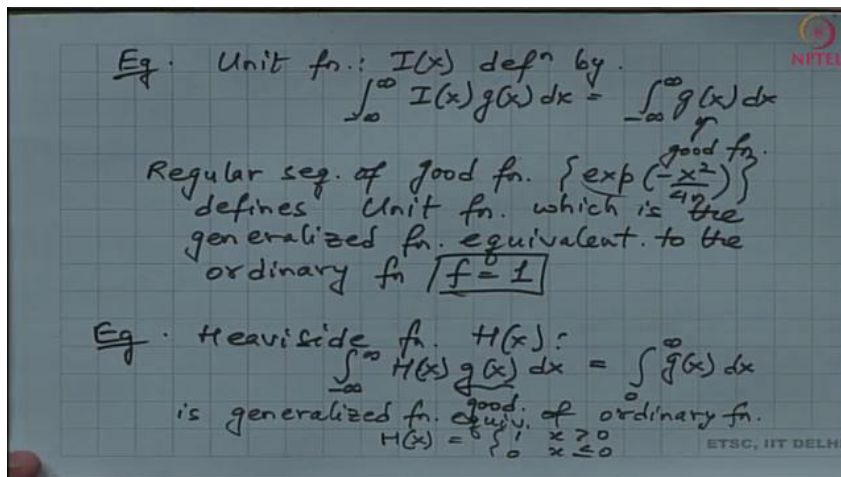 Eg. Unit fn.: I(x) defⁿ by.
∫_{-∞}^{∞} I(x) g(x) dx = ∫_{-∞}^{∞} g(x) dx
good fn.
Regular seq. of good fn. {exp(-x²/4n)}
defines Unit fn. which is the
generalized fn. equivalent. to the
ordinary fn f = 1
Eg. Heaviside fn. H(x):
∫_{-∞}^{∞} H(x) g(x) dx = ∫_{0}^{∞} g(x) dx
good.
is generalized fn. equiv. of ordinary fn.
H(x) = { 1 x > 0
0 x ≤ 0
NPTEL
ETSC, IIT DELH